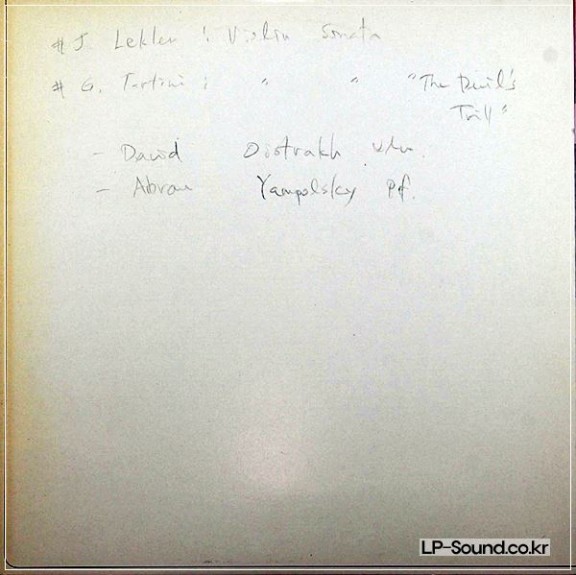 # J. Leklen : Violin Sonata
# G. Tartini : " " "The Devil's
Trill"
- David Oistrakh vln.
- Abram Yampolsky pf.
LP-Sound.co.kr